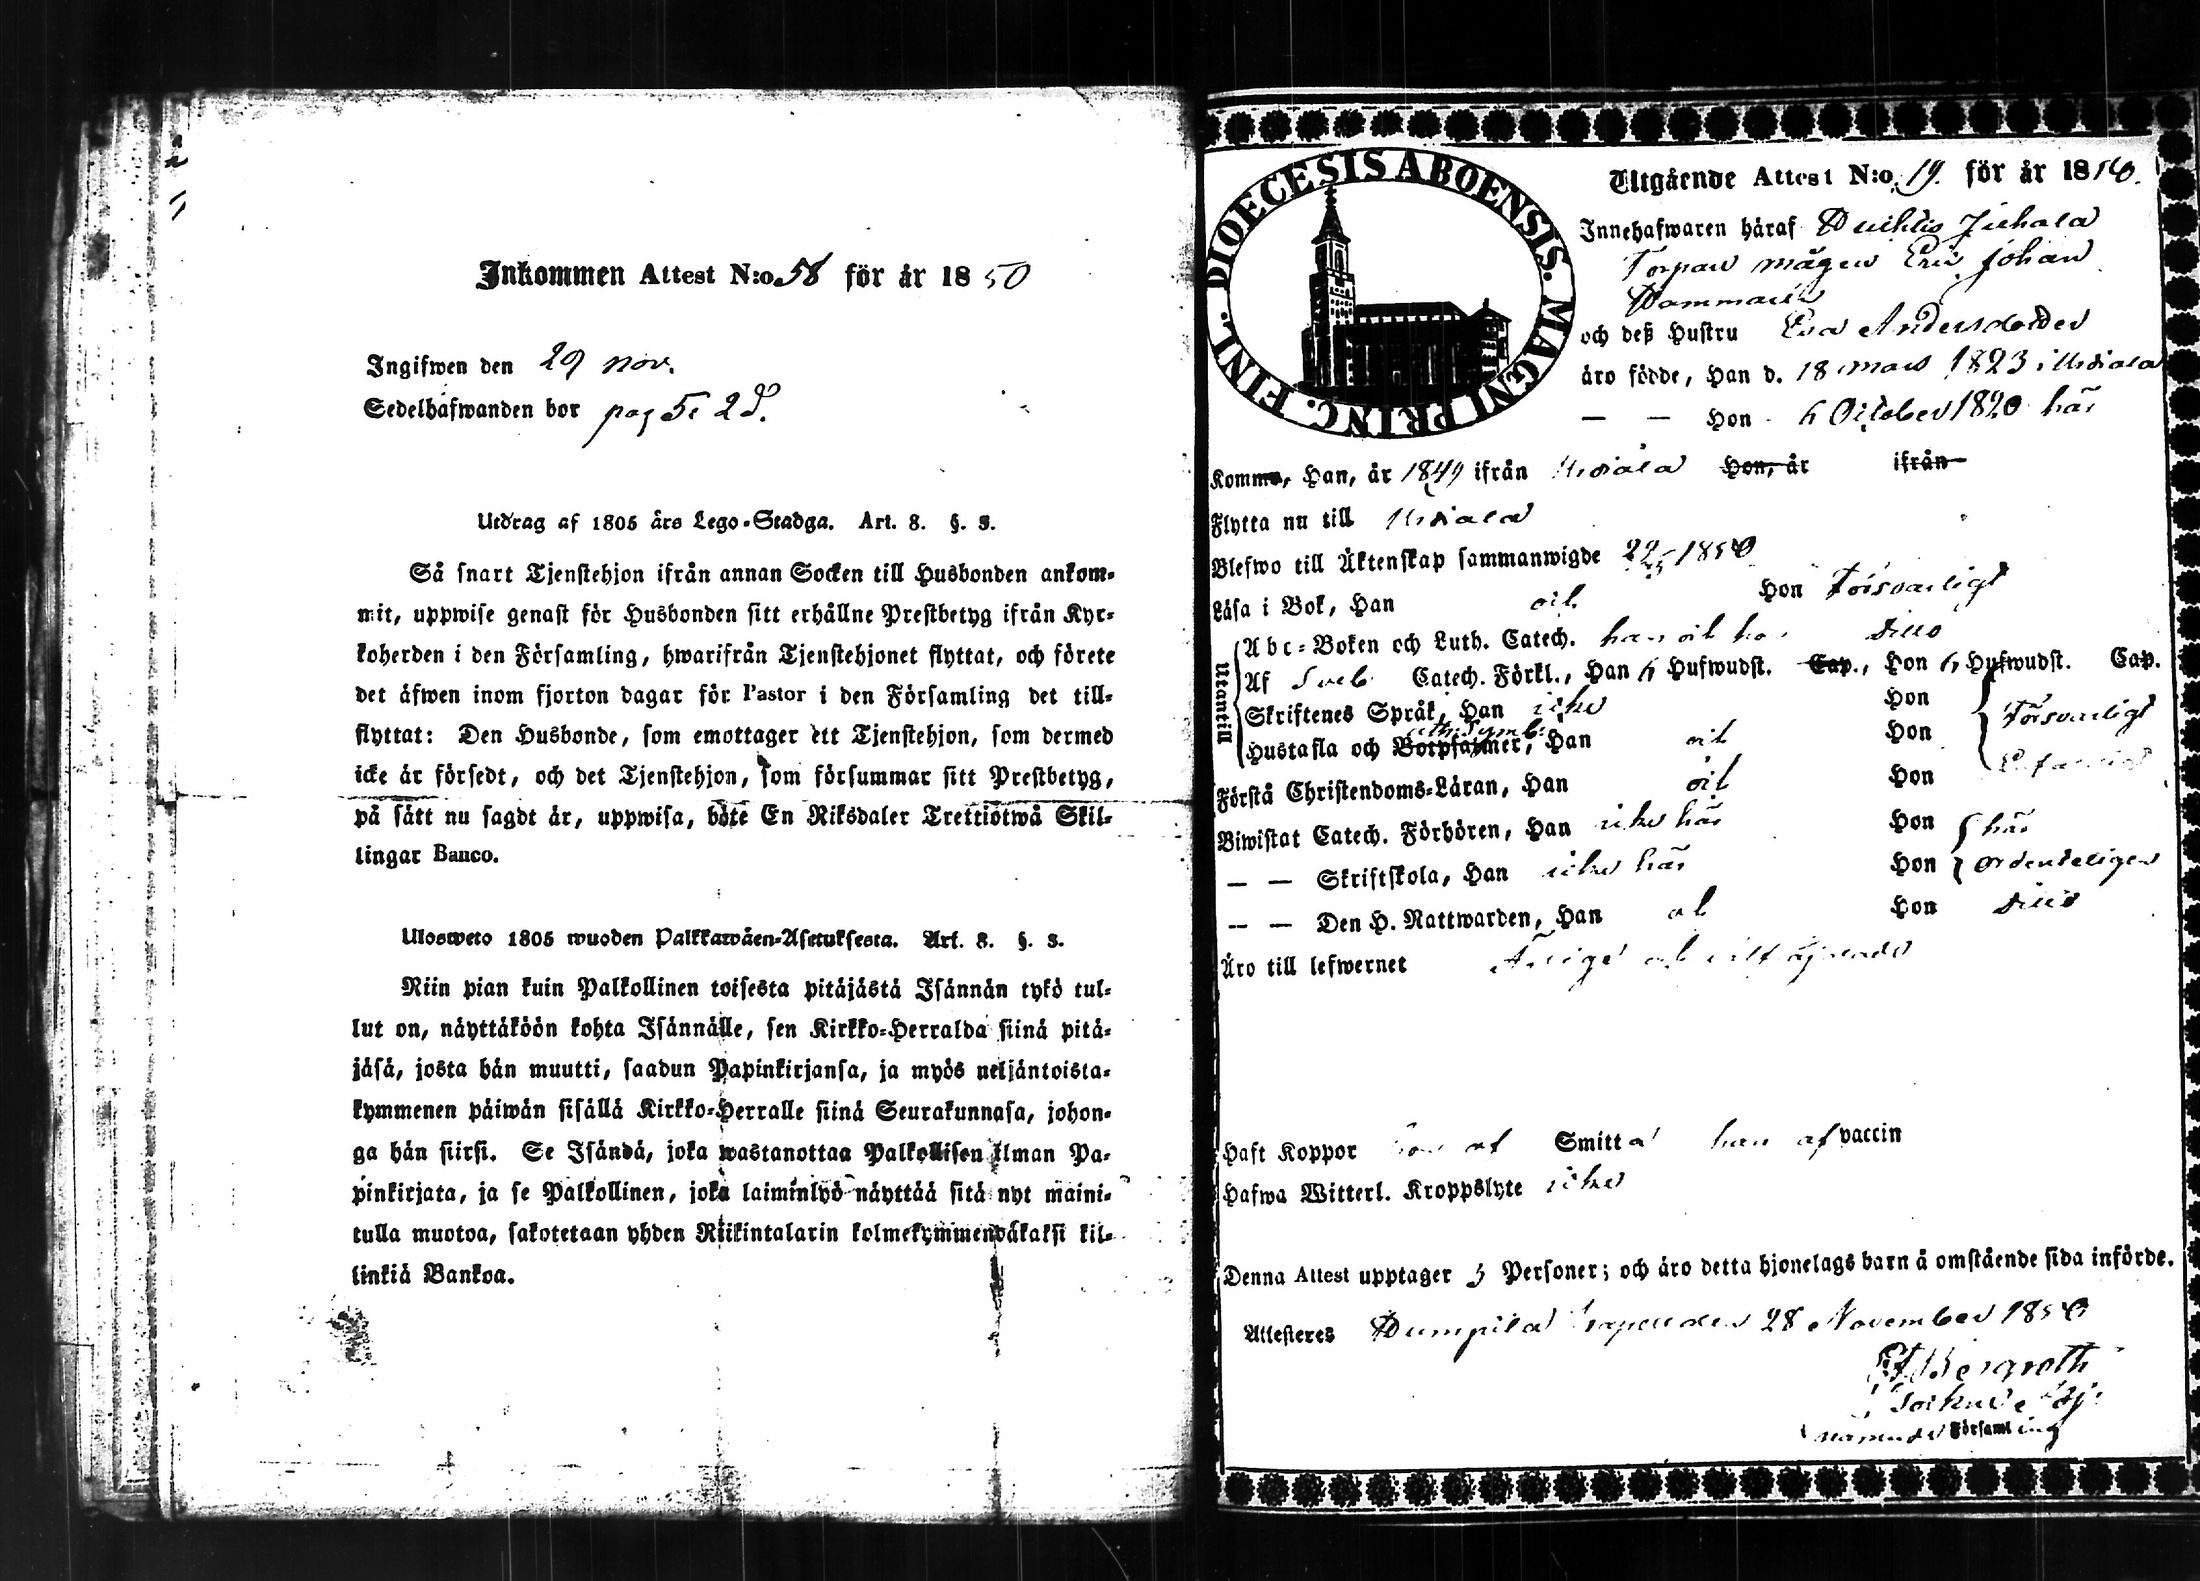 Inkommen Attest N:o 58 för år 1850
Ingifwen den 29 nov.
Sedelhafwanden bor pag 51 2d.
Utdrag af 1805 års Lego-Stadga. Art. 8. §. 3.
Så snart Tjenstehjon ifrån annan Socken till Husbonden ankom-
mit, uppwise genast för Husbonden sitt erhållne Prestbetyg ifrån Kyr-
koherden i den Församling, hwarifrån Tjenstehjonet flyttat, och förete
det äfwen inom fjorton dagar för Pastor i den Församling det till-
flyttat: Den Husbonde, som emottager ett Tjenstehjon, som dermed
icke är försedt, och det Tjenstehjon, som försummar sitt Prestbetyg,
på sätt nu sagdt är, uppwisa, böte En Riksdaler Trettiotwå Skil-
lingar Banco.
Ulosweto 1805 wuoden Palkkawäen-Asetuksesta. Art. 8. §. 3.
Niin pian kuin Palkollinen toisesta pitäjästä Isännän tykö tul-
lut on, näyttäköön kohta Isännälle, sen Kirkko-Herralda siinä pitä-
jäsä, josta hän muutti, saadun Papinkirjansa, ja myös neljäntoista-
kymmenen päiwän sisällä Kirkko-Herralle siinä Seurakunnasa, johon-
ga hän siirsi. Se Isändä, joka wastanottaa Palkollisen ilman Pa-
pinkirjata, ja se Palkollinen, joka laiminlyö näyttää sitä nyt maini-
tulla muotoa, sakotetaan yhden Riikintalarin kolmekymmendäkaksi kil-
linkiä Bankoa.
DIOECESIS ABOENSIS. MAGNI PRINC. FINL.
Utgående Attest N:o 19. för år 1850.
Innehafwaren häraf Juhala
Torpare mågen Eric Johan
Hammarén
och deß Hustru Eva Andersdotter
äro födde, Han d. 18 mars 1823 i Urdiala
— — Hon 6 October 1820 här
Komma, Han, år 1849 ifrån Urdiala Hon, år ifrån
Flytta nu till Urdiala
Blefwo till Äktenskap sammanwigde 22/5 1850
Läsa i Bok, Han Hon Försvarligt
Utantill
Abc-Boken och Luth. Catech. ditto
Af Sveb. Catech. Förkl., Han 6 Hufwudst. Cap., Hon 6 Hufwudst. Cap.
Skriftenes Språk, Han icke Hon
ath. Symb.
Hustafla och Botpsalmer, Han Hon Försvarligt
Förstå Christendoms-Läran, Han Hon
Biwistat Catech. Förhören, Han icke här Hon här
— — Skriftskola, Han icke här Hon ordenteligen
— — Den H. Nattwarden, Han Hon ditto
Äro till lefwernet
Haft Koppor Smitta han af vaccin
Hafwa Witterl. Kroppslyte icke
Denna Attest upptager 3 Personer; och äro detta hjonelags barn å omstående sida införde.
Attesteres 28 November 1850
Bergroth
Församling